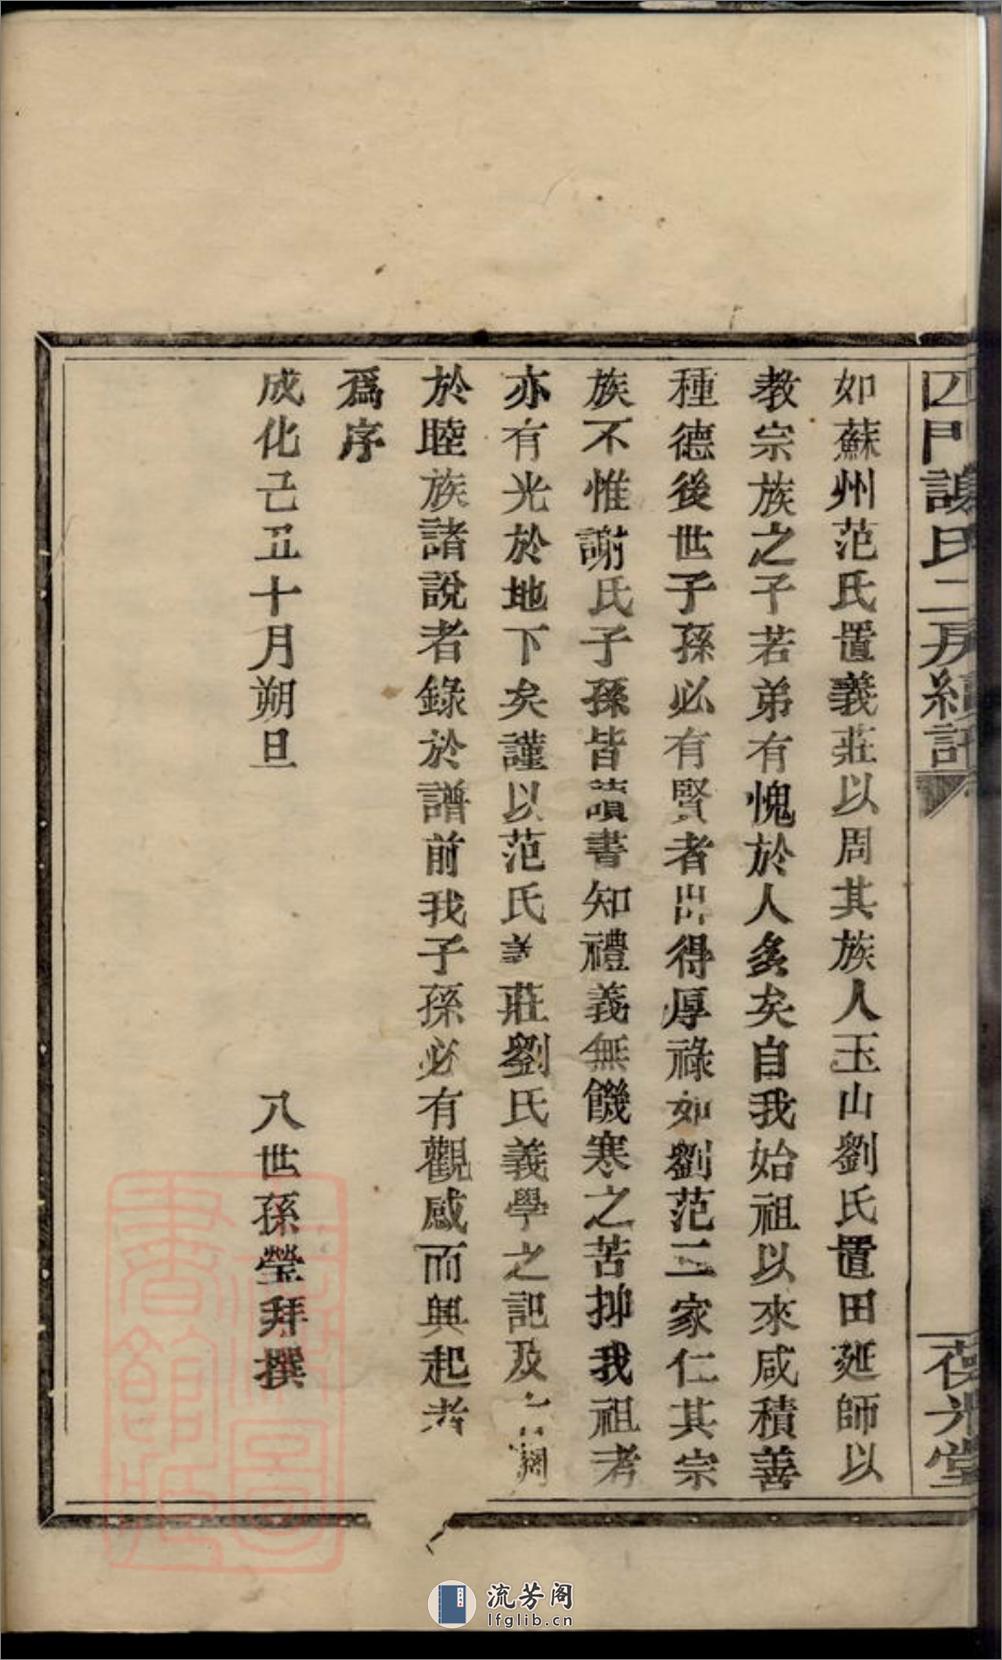 四門謝氏二房譜
葆光堂
如蘇州范氏置義莊以周其族人玉山劉氏置田延師以
教宗族之子若弟有愧於人多矣自我始祖以來咸積善
種德後世子孫必有賢者出得厚祿如劉范二家仁其宗
族不惟謝氏子孫皆讀書知禮義無饑寒之苦抑我祖考
亦有光於地下矣謹以范氏義莊劉氏義學之記及
於睦族諸說者錄於譜前我子孫必有觀感而興起者
爲序
成化己丑十月朔旦
八世孫瑩拜撰
圖書館
流芳阁
lfglib.cn